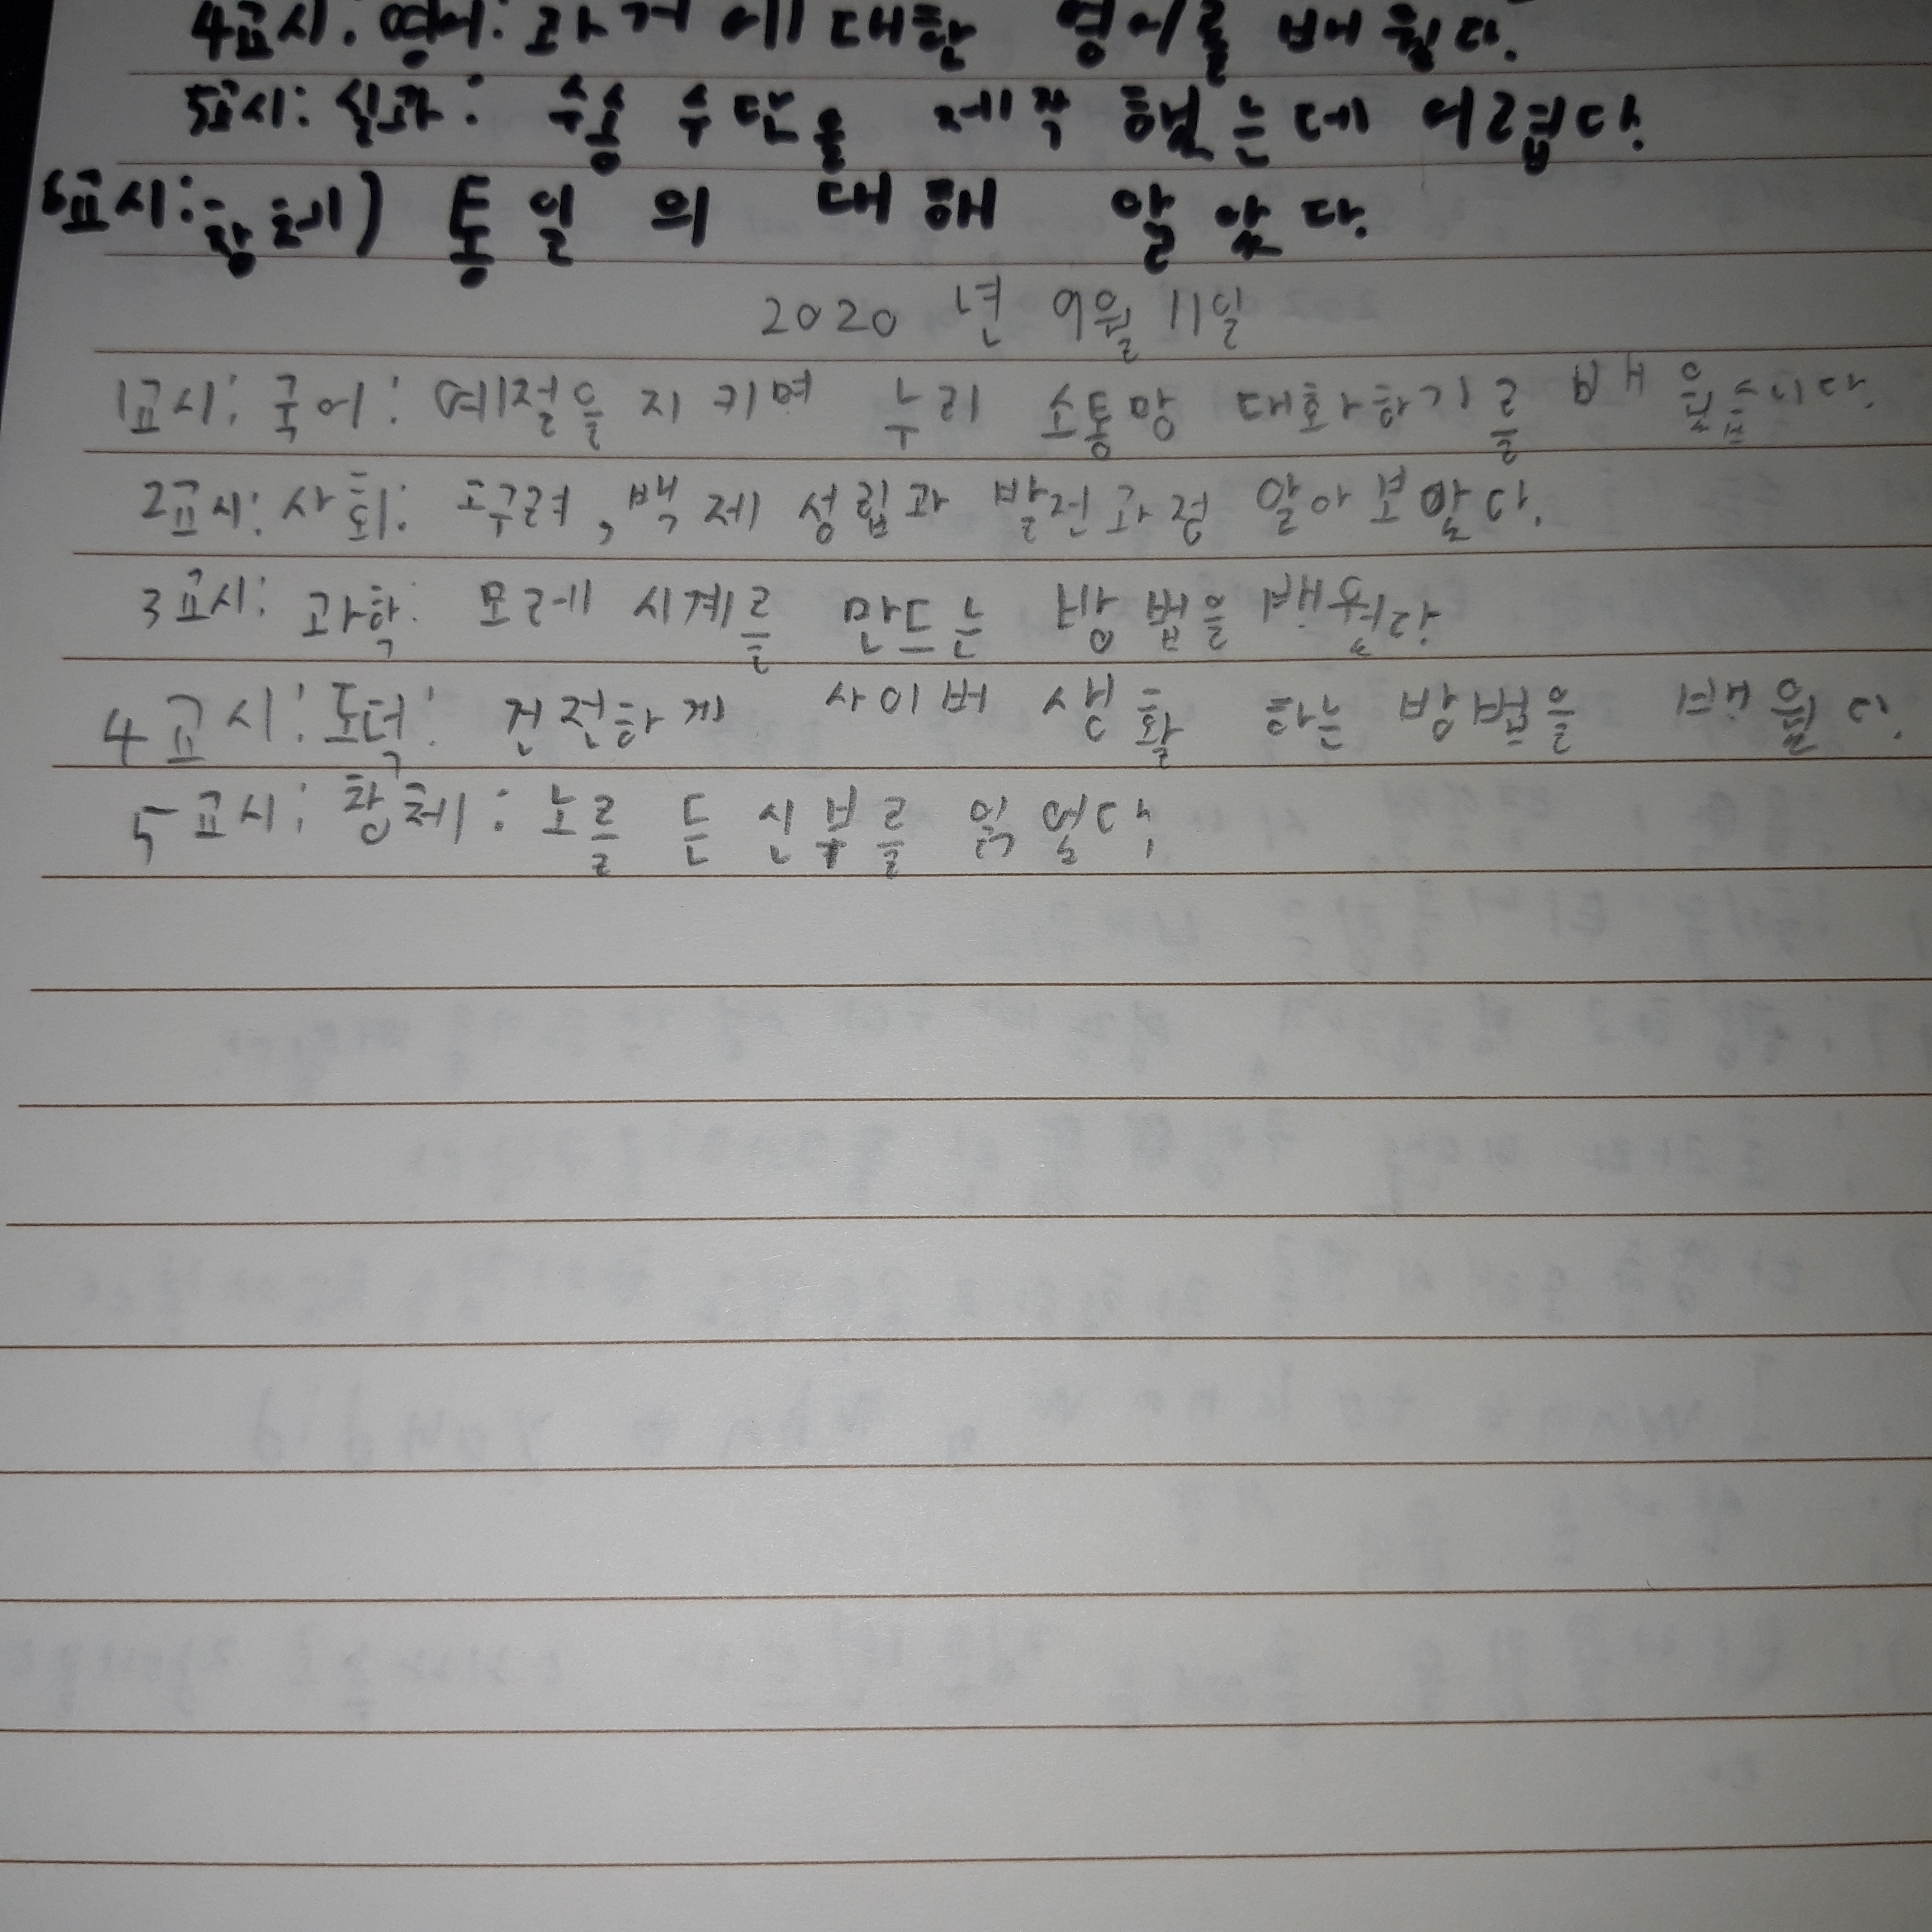 4교시: 영어: 과거에 대한 영어를 배웠다.
5교시: 실과: 수송 수단을 제작 했는데 어렵다.
6교시: 창체) 통일 의 대해 알았다.
2020 년 9월 11일
1교시: 국어: 예절을 지키며 누리 소통망 대화하기를 배웠습니다.
2교시: 사회: 고구려, 백제 성립과 발전과정 알아보았다.
3교시: 과학: 모레 시계를 만드는 방법을 배웠다.
4교시: 도덕: 건전하게 사이버 생활 하는 방법을 배웠다.
5교시: 창체: 노르 든 신부를 읽었다.